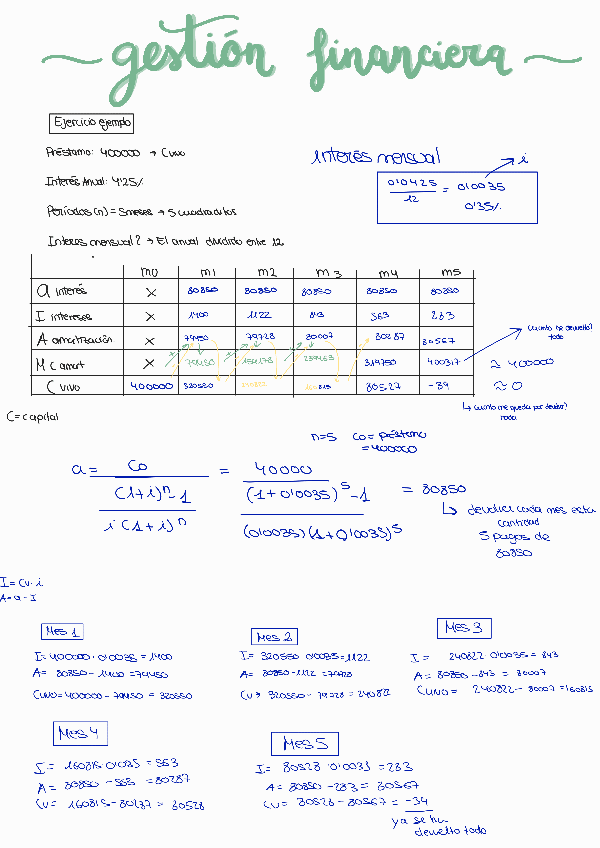 gestión financiera
Ejercicio ejemplo
Préstamo: 400000 → C vivo
Interés Anual: 4'25%
Períodos (n) = 5 meses → 5 cuadraditos
Interes mensual? → El anual dividido entre 12
interés mensual → i
0'0425 / 12 = 0'0035
0'35%
m0 m1 m2 m3 m4 m5
a interés X 80850 80850 80850 80850 80850
I intereses X 1400 1122 843 563 283
A amortización X 79450 79728 80007 80287 80567
M C amort X 79450 159178 239463 319750 400317
C vivo 400000 320550 240822 160815 80527 -39
Cuanto he devuelto?
todo
≈ 400000
≈ 0
↳ cuanto me queda por devolver?
nada
C = capital
n=5 Co = préstamo
= 400000
a = Co / ((1+i)^n - 1 / i(1+i)^n) = 40000 / ((1+0'0035)^5 - 1 / (0'0035)(1+0'0035)^5) = 80850
↳ devolver cada mes esta
cantidad
5 pagos de
80850
I = Cv · i
A = a - I
Mes 1
I = 400000 · 0'0035 = 1400
A = 80850 - 1400 = 79450
C vivo = 400000 - 79450 = 320550
Mes 2
I = 320550 · 0'0035 = 1122
A = 80850 - 1122 = 79728
Cv = 320550 - 79728 = 240822
Mes 3
I = 240822 · 0'0035 = 843
A = 80850 - 843 = 80007
C vivo = 240822 - 80007 = 160815
Mes 4
I = 160815 · 0'0035 = 563
A = 80850 - 563 = 80287
Cv = 160815 - 80287 = 80528
Mes 5
I = 80528 · 0'0035 = 283
A = 80850 - 283 = 80567
Cv = 80528 - 80567 = -34
ya se ha
devuelto todo